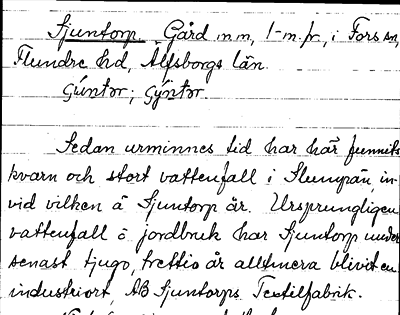 Sjuntorp. Gård m.m, 1-m.fr, i Fors sn,
Flundre hd, Älfsborgs län.
Gúntər; Gyntər.
Sedan urminnes tid har här funnits
kvarn och stort vattenfall i Slumpån, in-
vid vilken å Sjuntorp är. Ursprungligen
vattenfall o jordbruk har Sjuntorp under
senast tjugo, trettio år alltmera blivit en
industriort, AB Sjuntorps Textilfabrik.